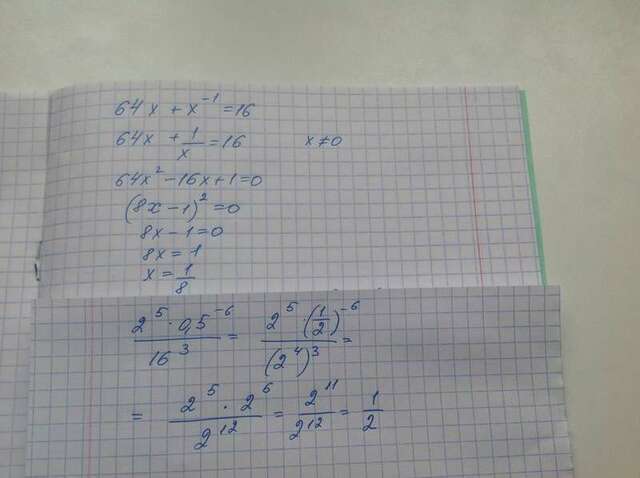 64x + x⁻¹ = 16
64x + 1/x = 16    x ≠ 0
64x² - 16x + 1 = 0
(8x - 1)² = 0
8x - 1 = 0
8x = 1
x = 1/8
(2⁵ · 0,5⁻⁶)/16³ = (2⁵ · (1/2)⁻⁶)/(2⁴)³ =
= (2⁵ · 2⁶)/2¹² = 2¹¹/2¹² = 1/2